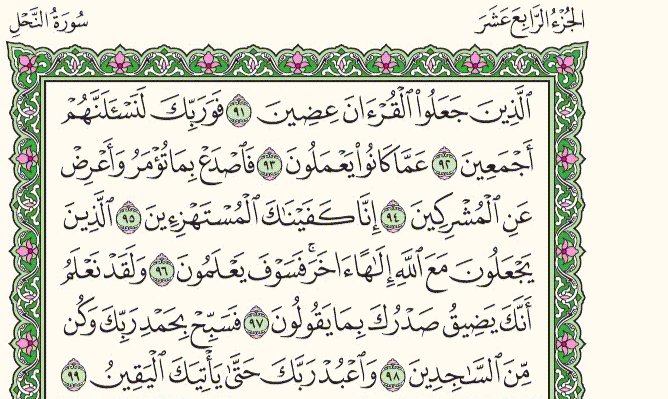 الجُزْءُ الرَّابِعَ عَشَرَ
سُورَةُ النَّحْلِ
الَّذِينَ جَعَلُوا۟ الْقُرْءَانَ عِضِينَ ٩١ فَوَرَبِّكَ لَنَسْـَٔلَنَّهُمْ
أَجْمَعِينَ ٩٢ عَمَّا كَانُوا۟ يَعْمَلُونَ ٩٣ فَاصْدَعْ بِمَا تُؤْمَرُ وَأَعْرِضْ
عَنِ الْمُشْرِكِينَ ٩٤ إِنَّا كَفَيْنَاكَ الْمُسْتَهْزِءِينَ ٩٥ الَّذِينَ
يَجْعَلُونَ مَعَ اللَّهِ إِلَـٰهًا ءَاخَرَ ۚ فَسَوْفَ يَعْلَمُونَ ٩٦ وَلَقَدْ نَعْلَمُ
أَنَّكَ يَضِيقُ صَدْرُكَ بِمَا يَقُولُونَ ٩٧ فَسَبِّحْ بِحَمْدِ رَبِّكَ وَكُن
مِّنَ السَّـٰجِدِينَ ٩٨ وَاعْبُدْ رَبَّكَ حَتَّىٰ يَأْتِيَكَ الْيَقِينُ ٩٩